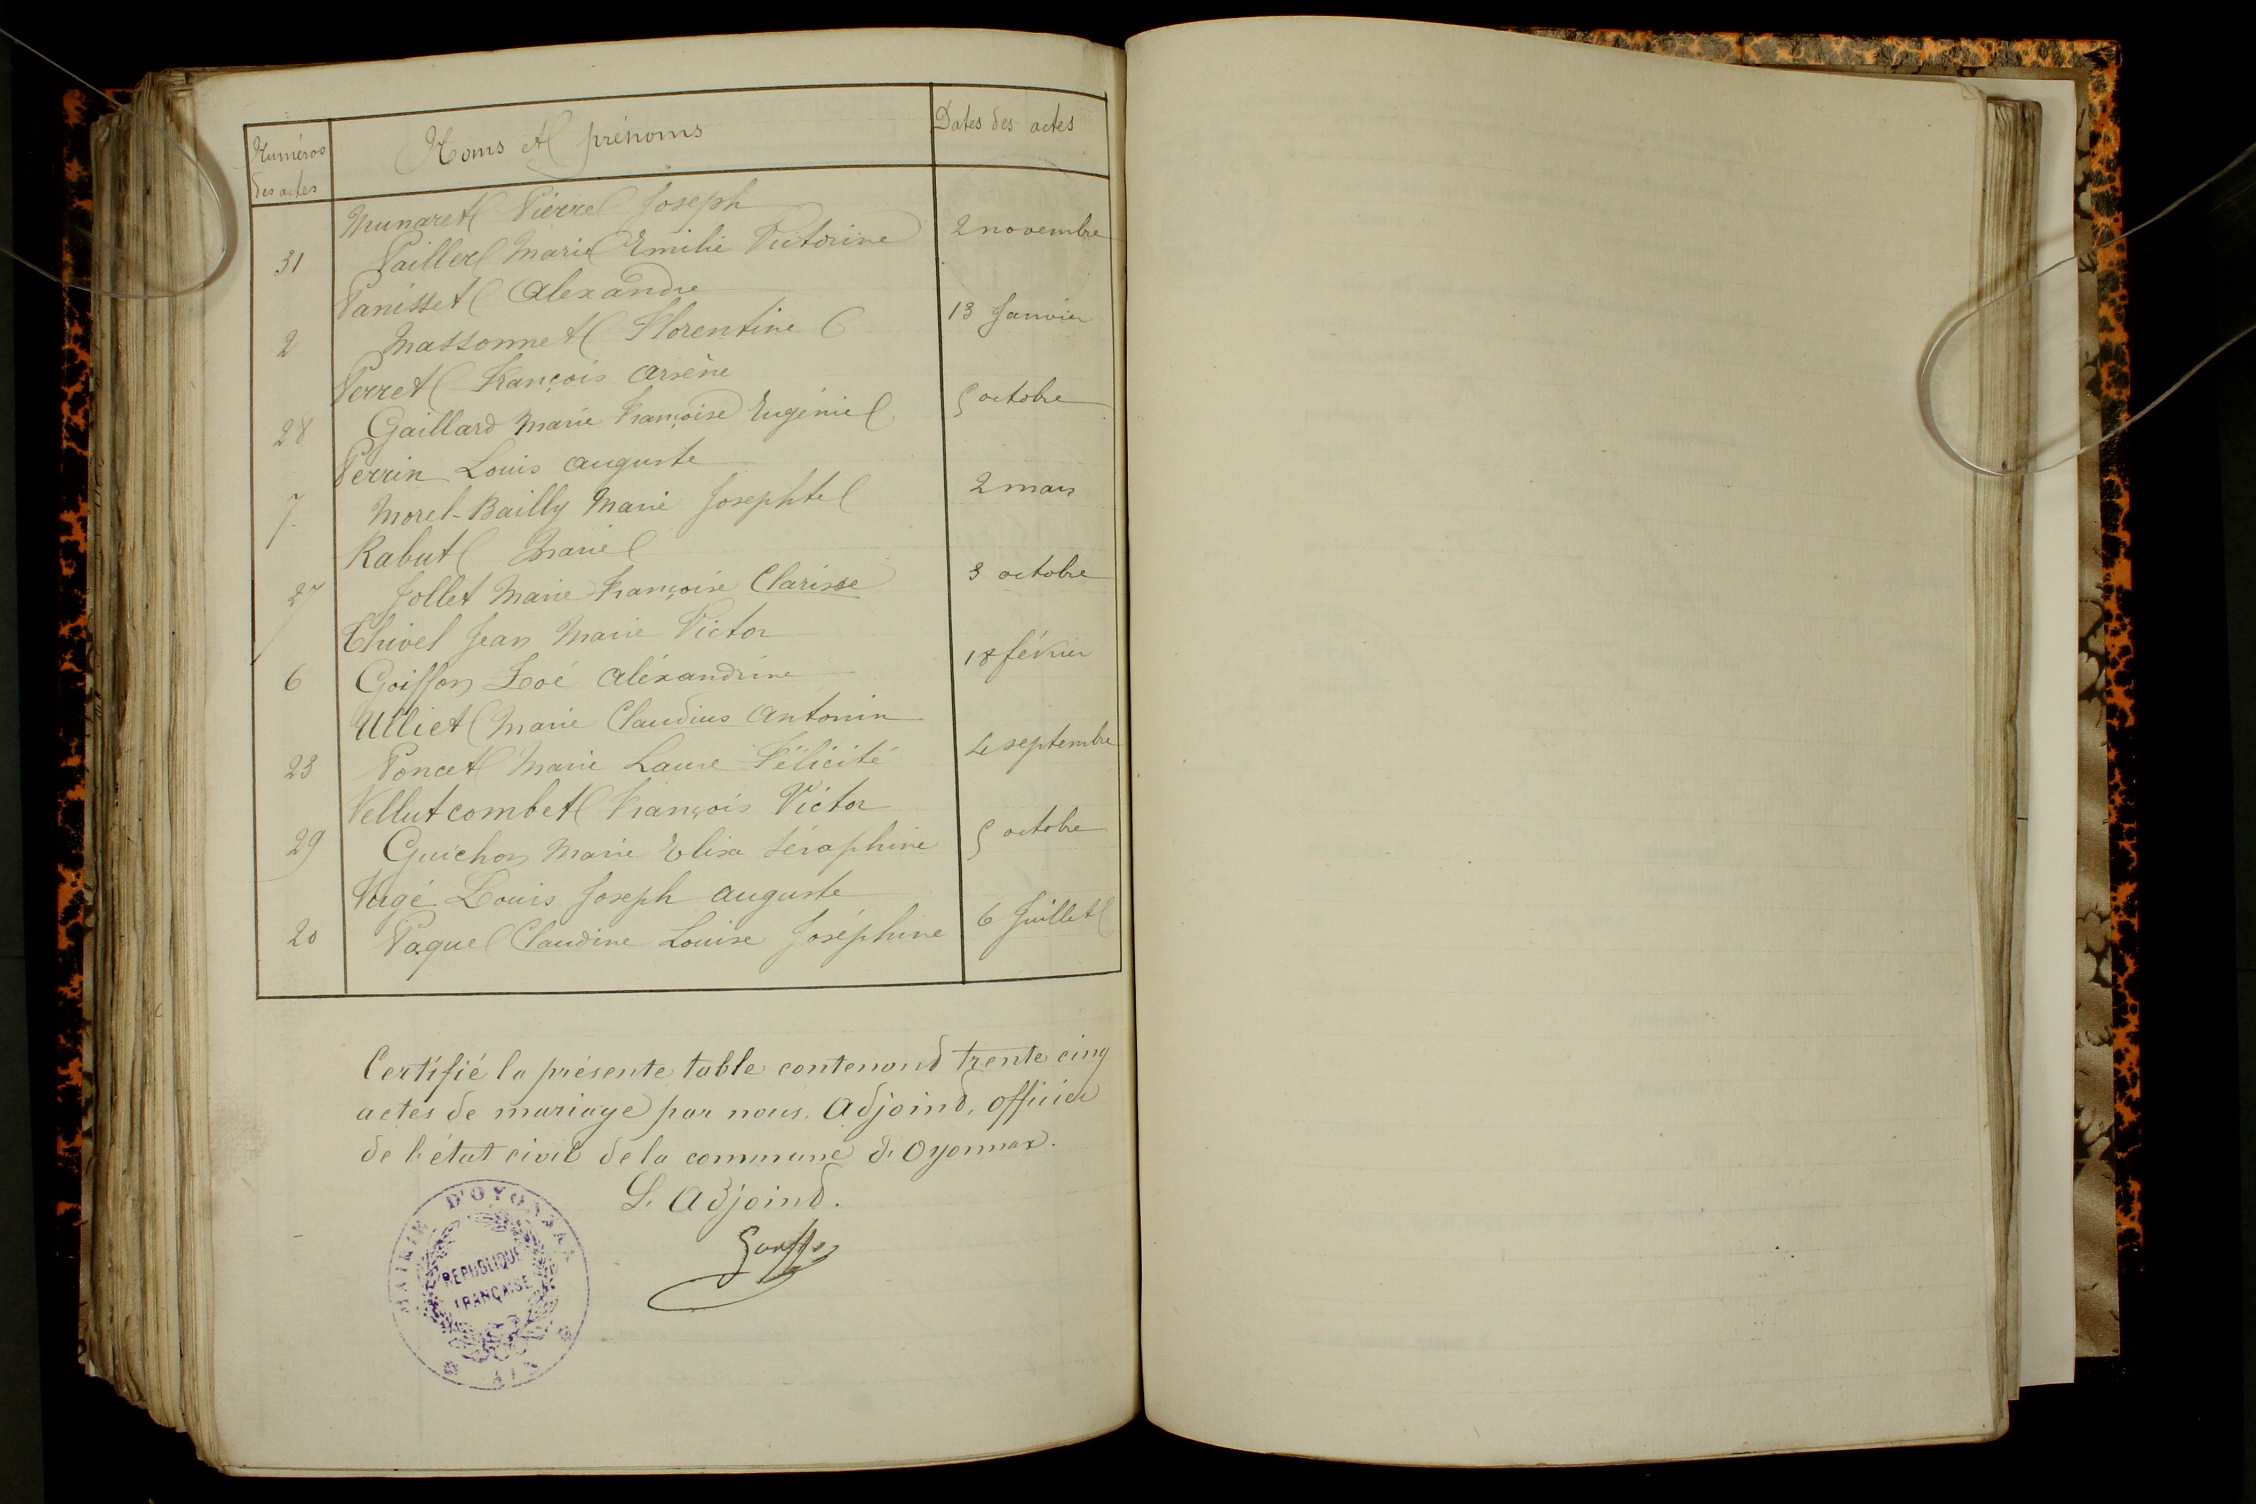 Numéros des actes
Noms et prénoms
Dates des actes
Munaret Pierre Joseph
31 Paillet Marie Emilie Victorine 2 novembre
Panisset Alexandre
2 Massonnet Florentine 13 Janvier
Perret François Arsène
28 Gaillard Marie Françoise Eugénie 5 octobre
Perrin Louis Auguste
7 Morel-Bailly Marie Josephte 2 mars
Rabut Marie
27 Jollet Marie Françoise Clarisse 3 octobre
Thivel Jean Marie Victor
6 Goiffon Zoé Aléxandrine 18 février
Ulliet Marie Claudius Antonin
23 Poncet Marie Laure Félicité 4 septembre
Vellutcombet François Victor
29 Guichon Marie Elisa Séraphine 5 octobre
Vugé Louis Joseph Auguste
20 Paque Claudine Louise Joséphine 6 Juillet
Certifié la présente table contenand trente cinq
actes de mariage par nous, Adjoind, officier
de l'état civil de la commune d'Oyonnax.
L'Adjoind.
MAIRIE D'OYONNAX
RÉPUBLIQUE
FRANÇAISE
AIN